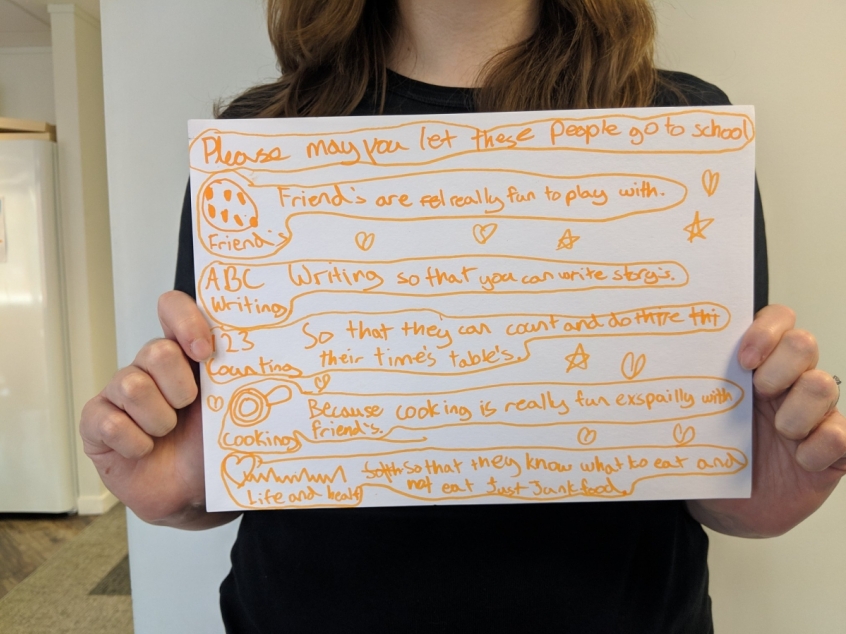 Please may you let these people go to school
Friend's are rel really fun to play with.
Friend's
ABC Writing so that you can write storgis.
Writing
123 So that they can count and do thire thi
Counting their time's table's.
Because cooking is really fun exspailly with
Cooking friend's.
so that they know what to eat and
Life and health not eat Just Junk food.